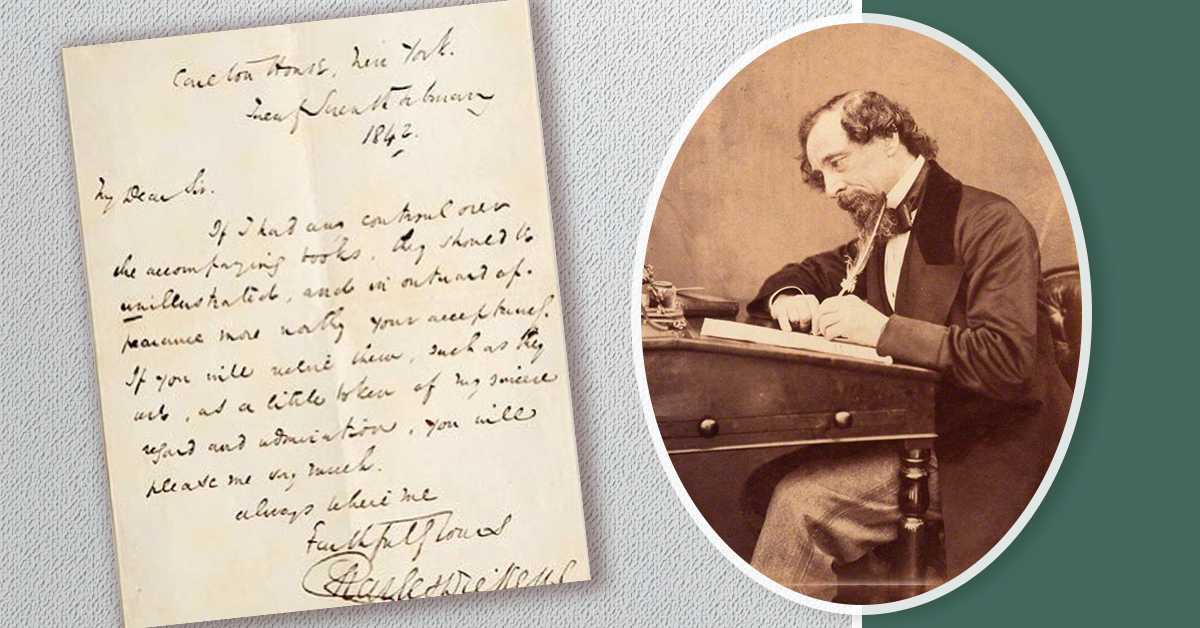 Carlton House, New York.
February
1842.
My Dear Sir.
If I had any control over
the accompanying books, they should be
unillustrated, and in outward ap-
pearance more worthy your acceptance.
If you will value them, such as they
are, as a little token of my sincere
regard and admiration, you will
please me very much.
always believe me
Faithfully Yours
Charles Dickens